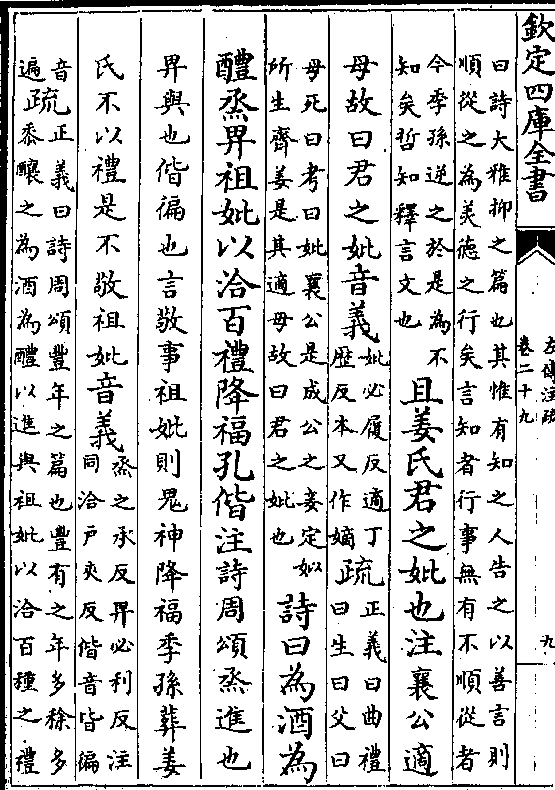 欽定四庫全書
左傳注疏
卷二十九
九
曰詩大雅抑之篇也其惟有知之人告之以善言則
順從之為美德之行矣言知者行事無有不順從者
今季孫逆之於是為不
知矣哲知釋言文也
且姜氏君之妣也注襄公適
母故曰君之妣音義
妣必履反適丁
歴反本又作嫡
疏
正義曰曲禮
曰生曰父曰
母死曰考曰妣襄公是成公之妾定姒
所生齊姜是其適母故曰君之妣也
詩曰為酒為
醴烝畀祖妣以洽百禮降福孔偕注詩周頌烝進也
畀與也偕徧也言敬事祖妣則鬼神降福季孫葬姜
氏不以禮是不敬祖妣音義
烝之承反畀必利反注
同洽户夾反偕音皆徧
音
遍
疏
正義曰詩周頌豐年之篇也豐有之年多稌多
黍釀之為酒為醴以進與祖妣以洽百種之禮